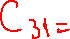 C₃₁=